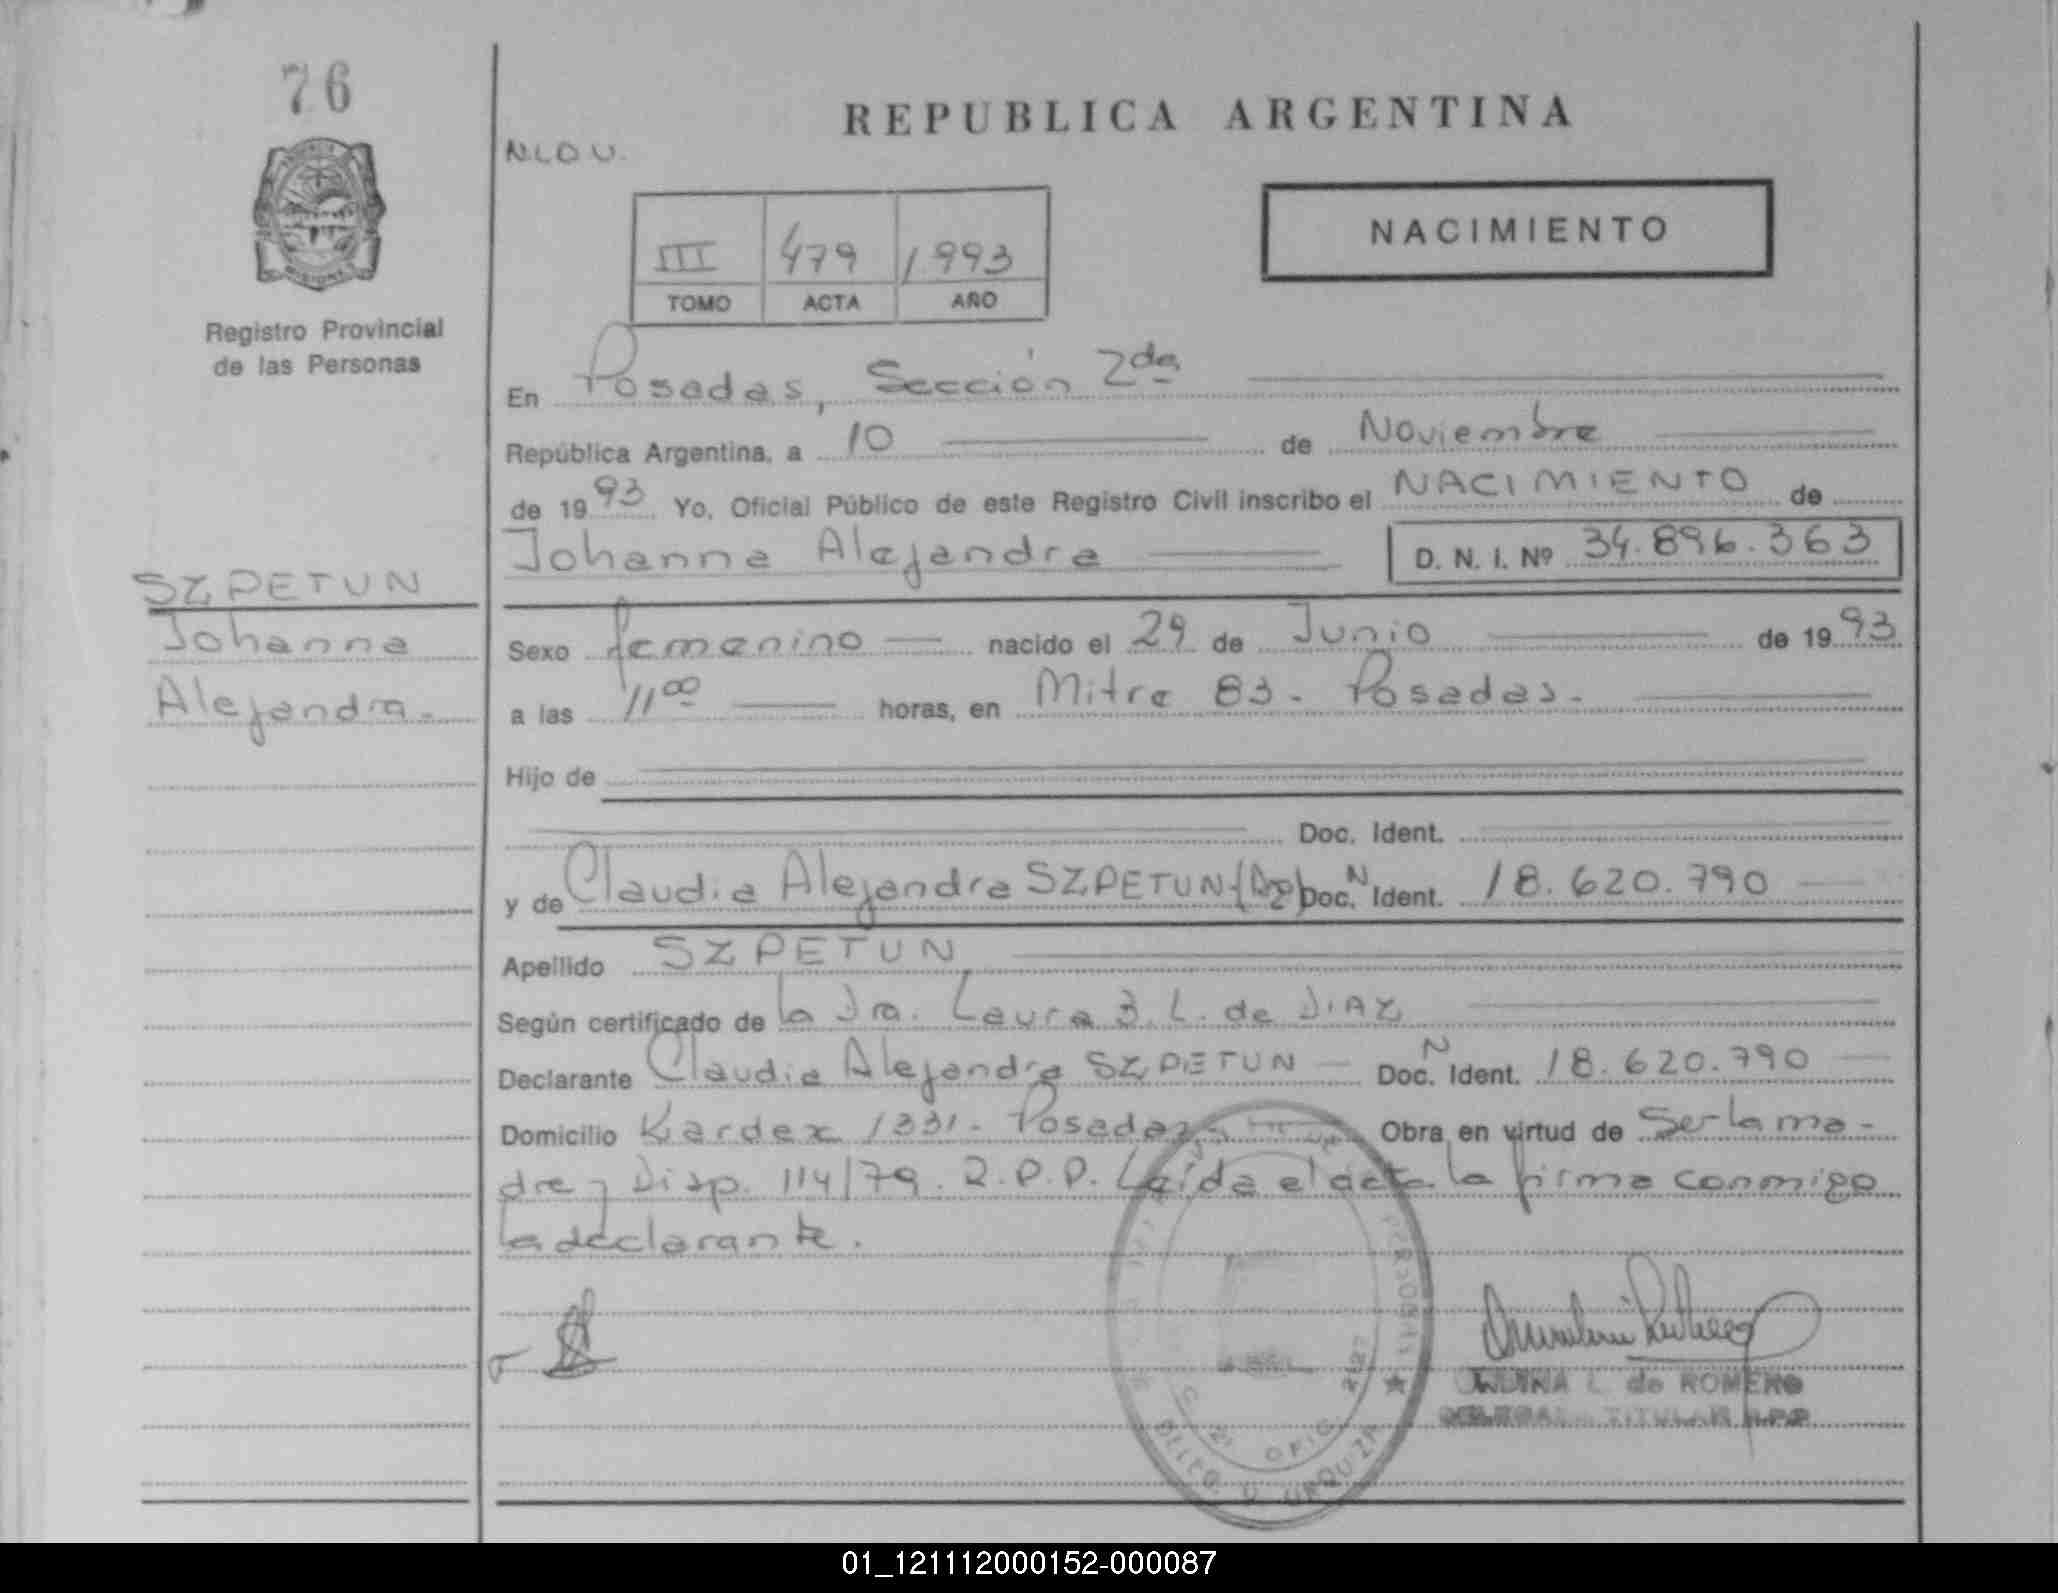 76
REPUBLICA ARGENTINA
N.L.O.U.
III 479 1993
TOMO ACTA AÑO
NACIMIENTO
Registro Provincial
de las Personas
En Posadas, Sección 2da
República Argentina, a 10 de Noviembre
de 1993 Yo, Oficial Público de este Registro Civil inscribo el NACIMIENTO de
Johanna Alejandra D. N. I. Nº 34.896.363
SZPETUN
Johanna
Alejandra.
Sexo femenino nacido el 29 de Junio de 1993
a las 11 00 horas, en Mitre 83 - Posadas.
Hijo de
Doc. Ident.
y de Claudia Alejandra SZPETUN Doc. N Ident. 18.620.790
Apellido SZPETUN
Según certificado de la Dra. Laura B. L. de DIAZ
Declarante Claudia Alejandra SZPETUN Doc. N Ident. 18.620.790
Domicilio Kardex 1331 - Posadas Obra en virtud de Ser la ma-
dre y Disp. 114/79. R.P.P. Leída el acta la firma conmigo
la declarante.
PERSONAS
OFIC. 2427
DELEG. V. URQUIZA
L. de ROMERO
TITULAR R.P.P
01_121112000152-000087